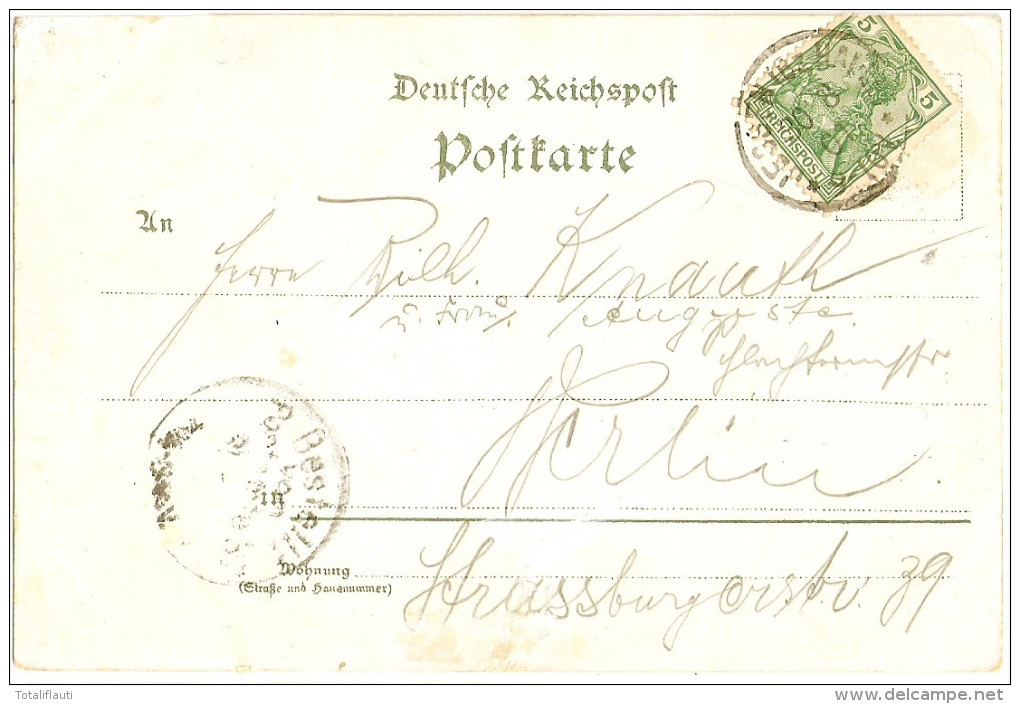 Deutsche Reichspost
Postkarte
5 5
REICHSPOST
An
Herrn Wilh. Knauth
u. Frau Auguste
Schlächtermstr.
Bestellt
in Berlin
Wohnung
(Straße und Hausnummer)
Strassburgerstr. 39
Totaliflauti
www.delcampe.net